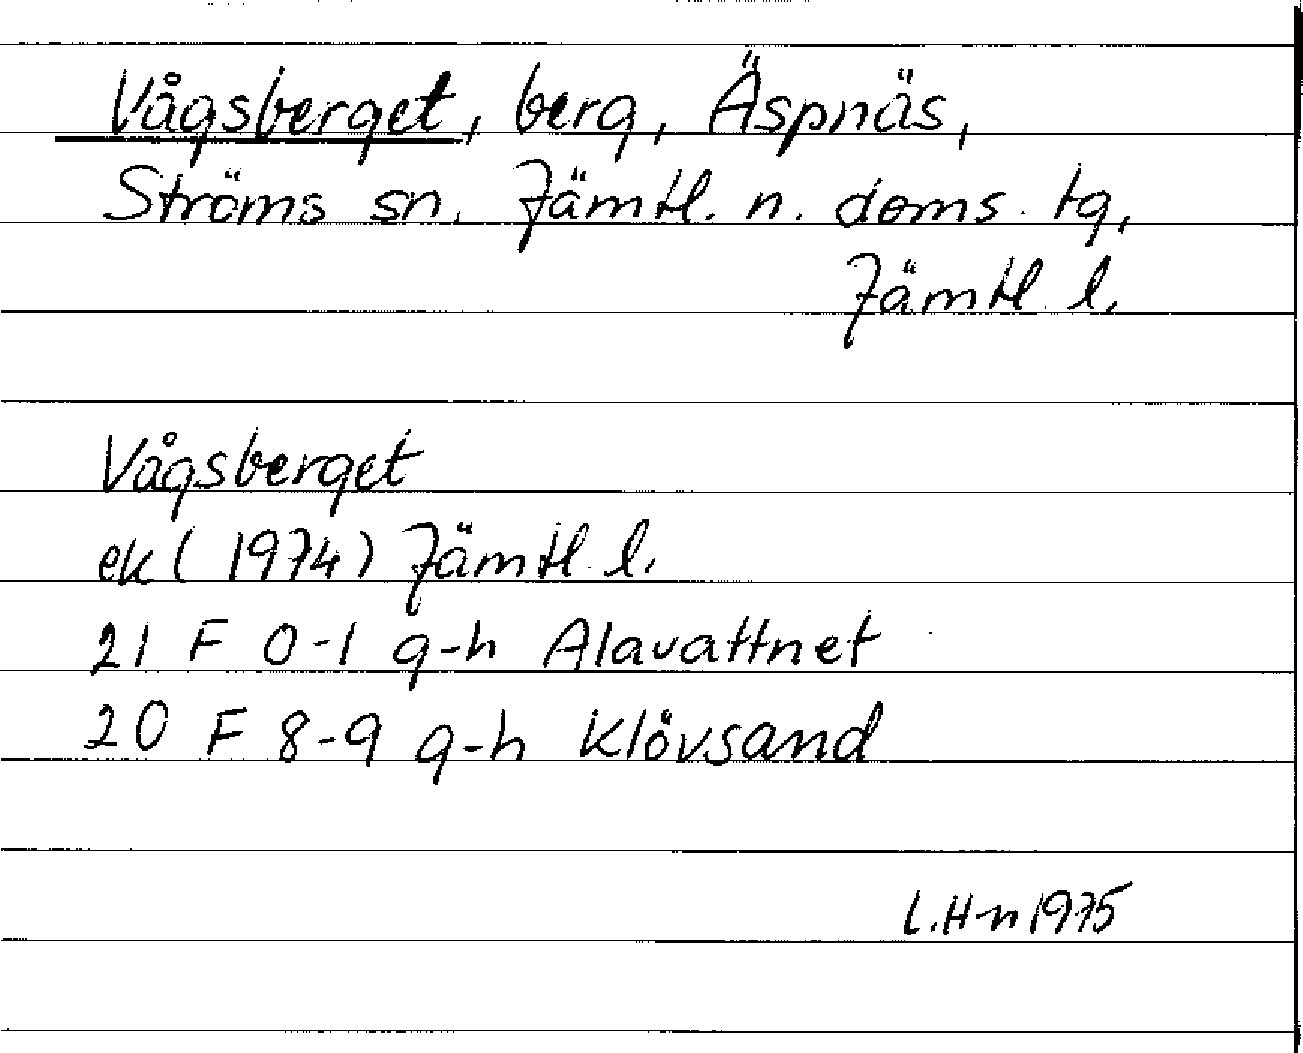 Vågsberget, berg, Äspnäs,
Ströms sn, Jämtl. n. doms. tg,
Jämtl. l.
Vågsberget
ek (1974) Jämtl. l.
21 F 0-1 g-h Alavattnet
20 F 8-9 g-h Klövsand
L.H-n 1975